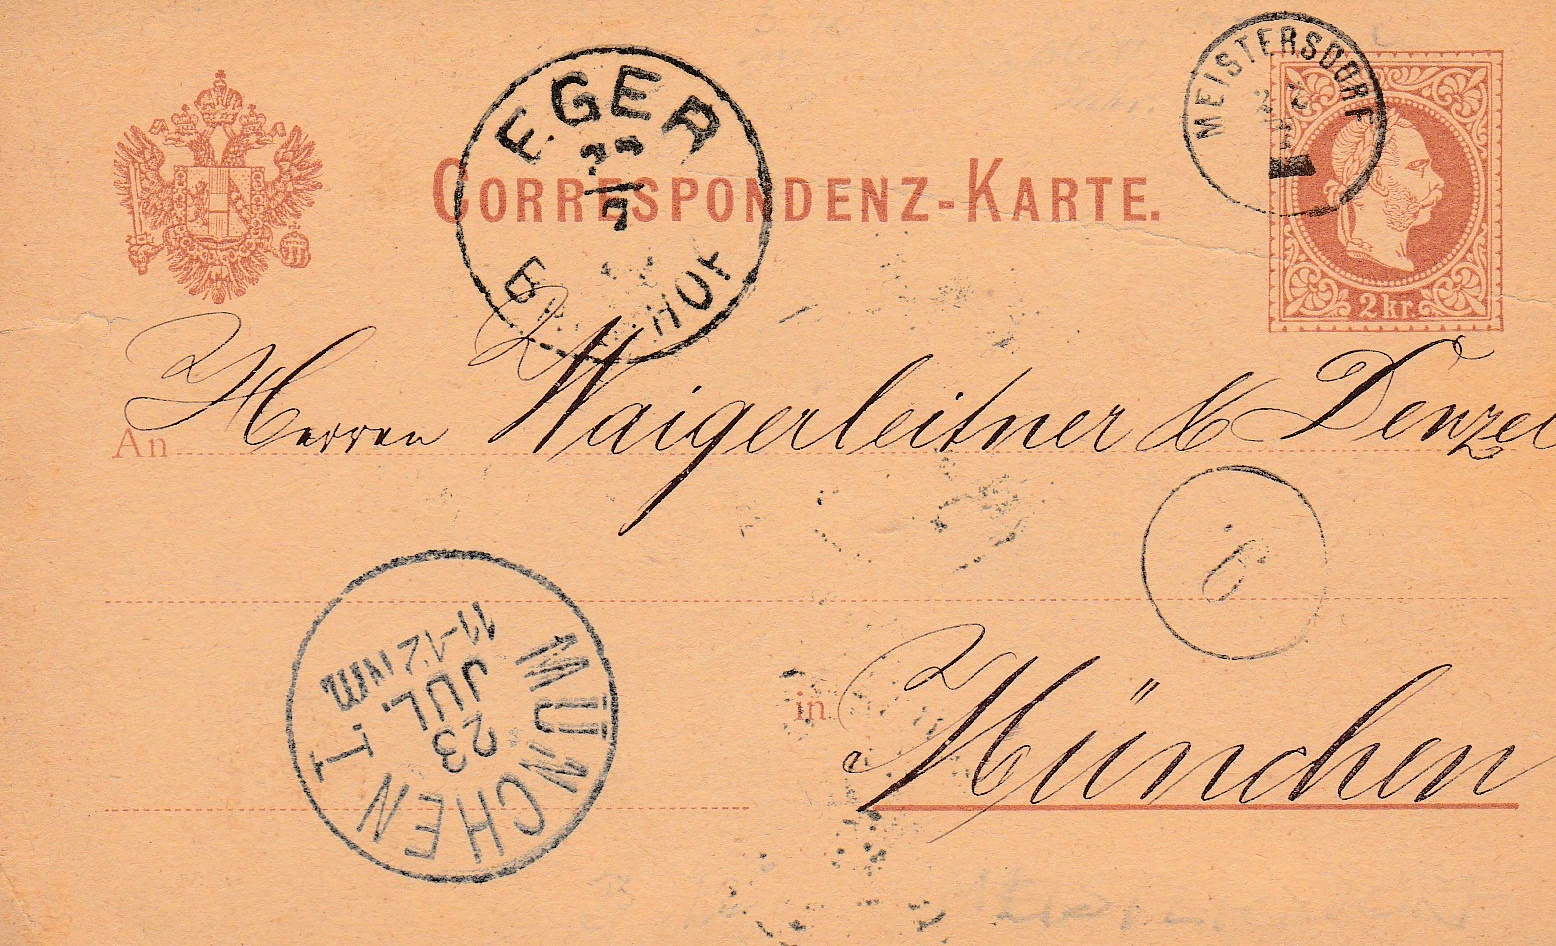 MEISTERSDORF
EGER
22
7
HOF
CORRESPONDENZ-KARTE.
2 kr.
An Herren Waigerleitner & Denzel
6
MÜNCHEN I
23
JUL.
11-12 NM
in München